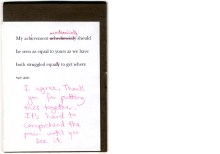 academically
My achievement academically should
be seen as equal to yours as we have
both struggled equally to get where
we are.
I agree. Thank
you for putting
this together.
It's hard to
comprehend the
pain until you
see it.